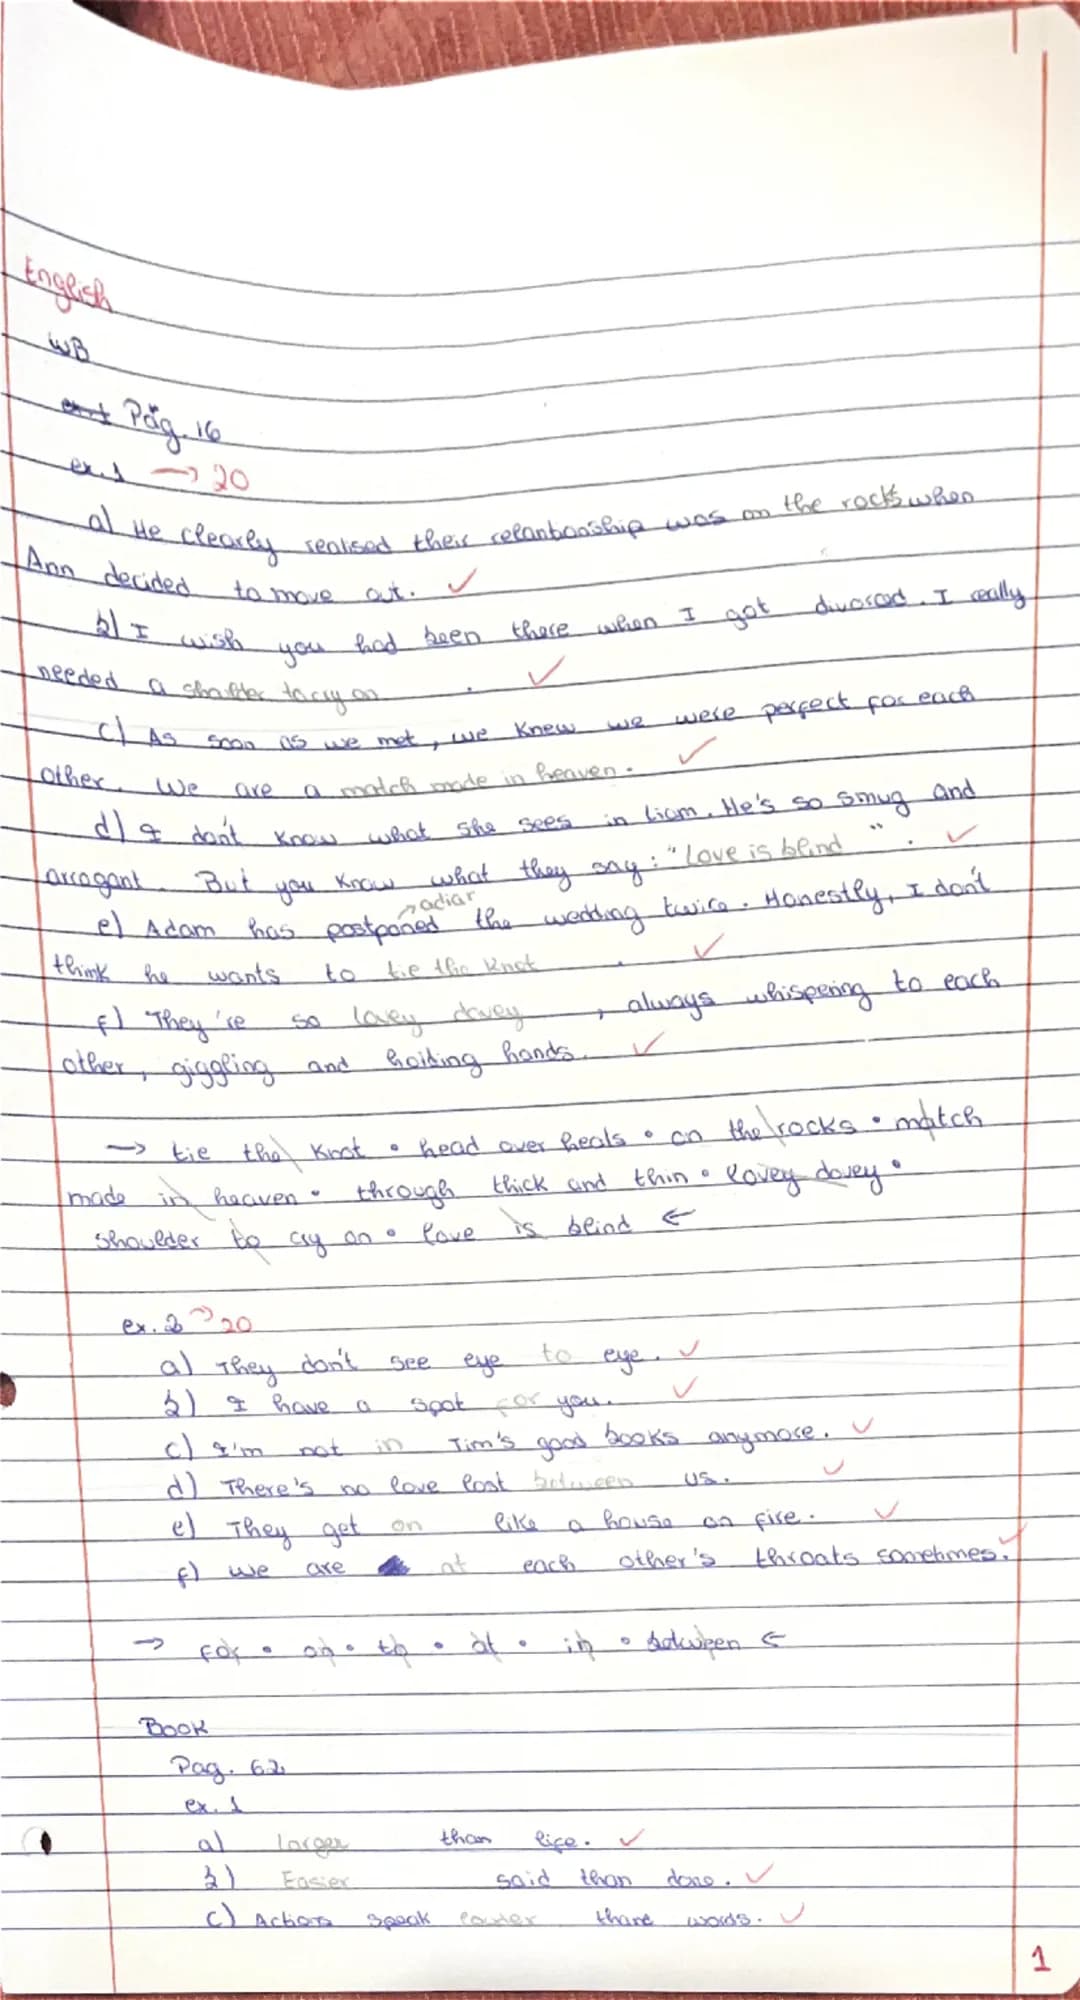 English
WB
Pág. 16
ex. 1 → 20
a) He clearly realised their relantionship was on the rocks when
Ann decided to move out. ✓
b) I wish you had been there when I got divorced. I really
needed a shoulder to cry on . ✓
c) As soon as we met, we knew we were perfect for each
other. We are a match made in heaven. ✓
d) I don't know what she sees in Liam. He's so smug and
arrogant. But you know what they say: "Love is blind ". ✓
→ adiar
e) Adam has postponed the wedding twice. Honestly, I don't
think he wants to tie the knot . ✓
f) They're so lovey dovey , always whispering to each
other, giggling and holding hands. ✓
→ tie the knot • head over heals • on the rocks • match
made in heaven • through thick and thin • lovey dovey •
shoulder to cry on • love is blind ←
ex. 2 → 20
a) They don't see eye to eye. ✓
b) I have a spot for you. ✓
c) I'm not in Tim's good books anymore. ✓
d) There's no love lost between us. ✓
e) They get on like a house on fire. ✓
f) We are at each other's throats sometimes. ✓
→ for • on • to • at • in • between ←
Book
Pag. 62
ex. 1
a) Larger than life. ✓
b) Easier said than done. ✓
c) Actions speak louder thane words. ✓
1